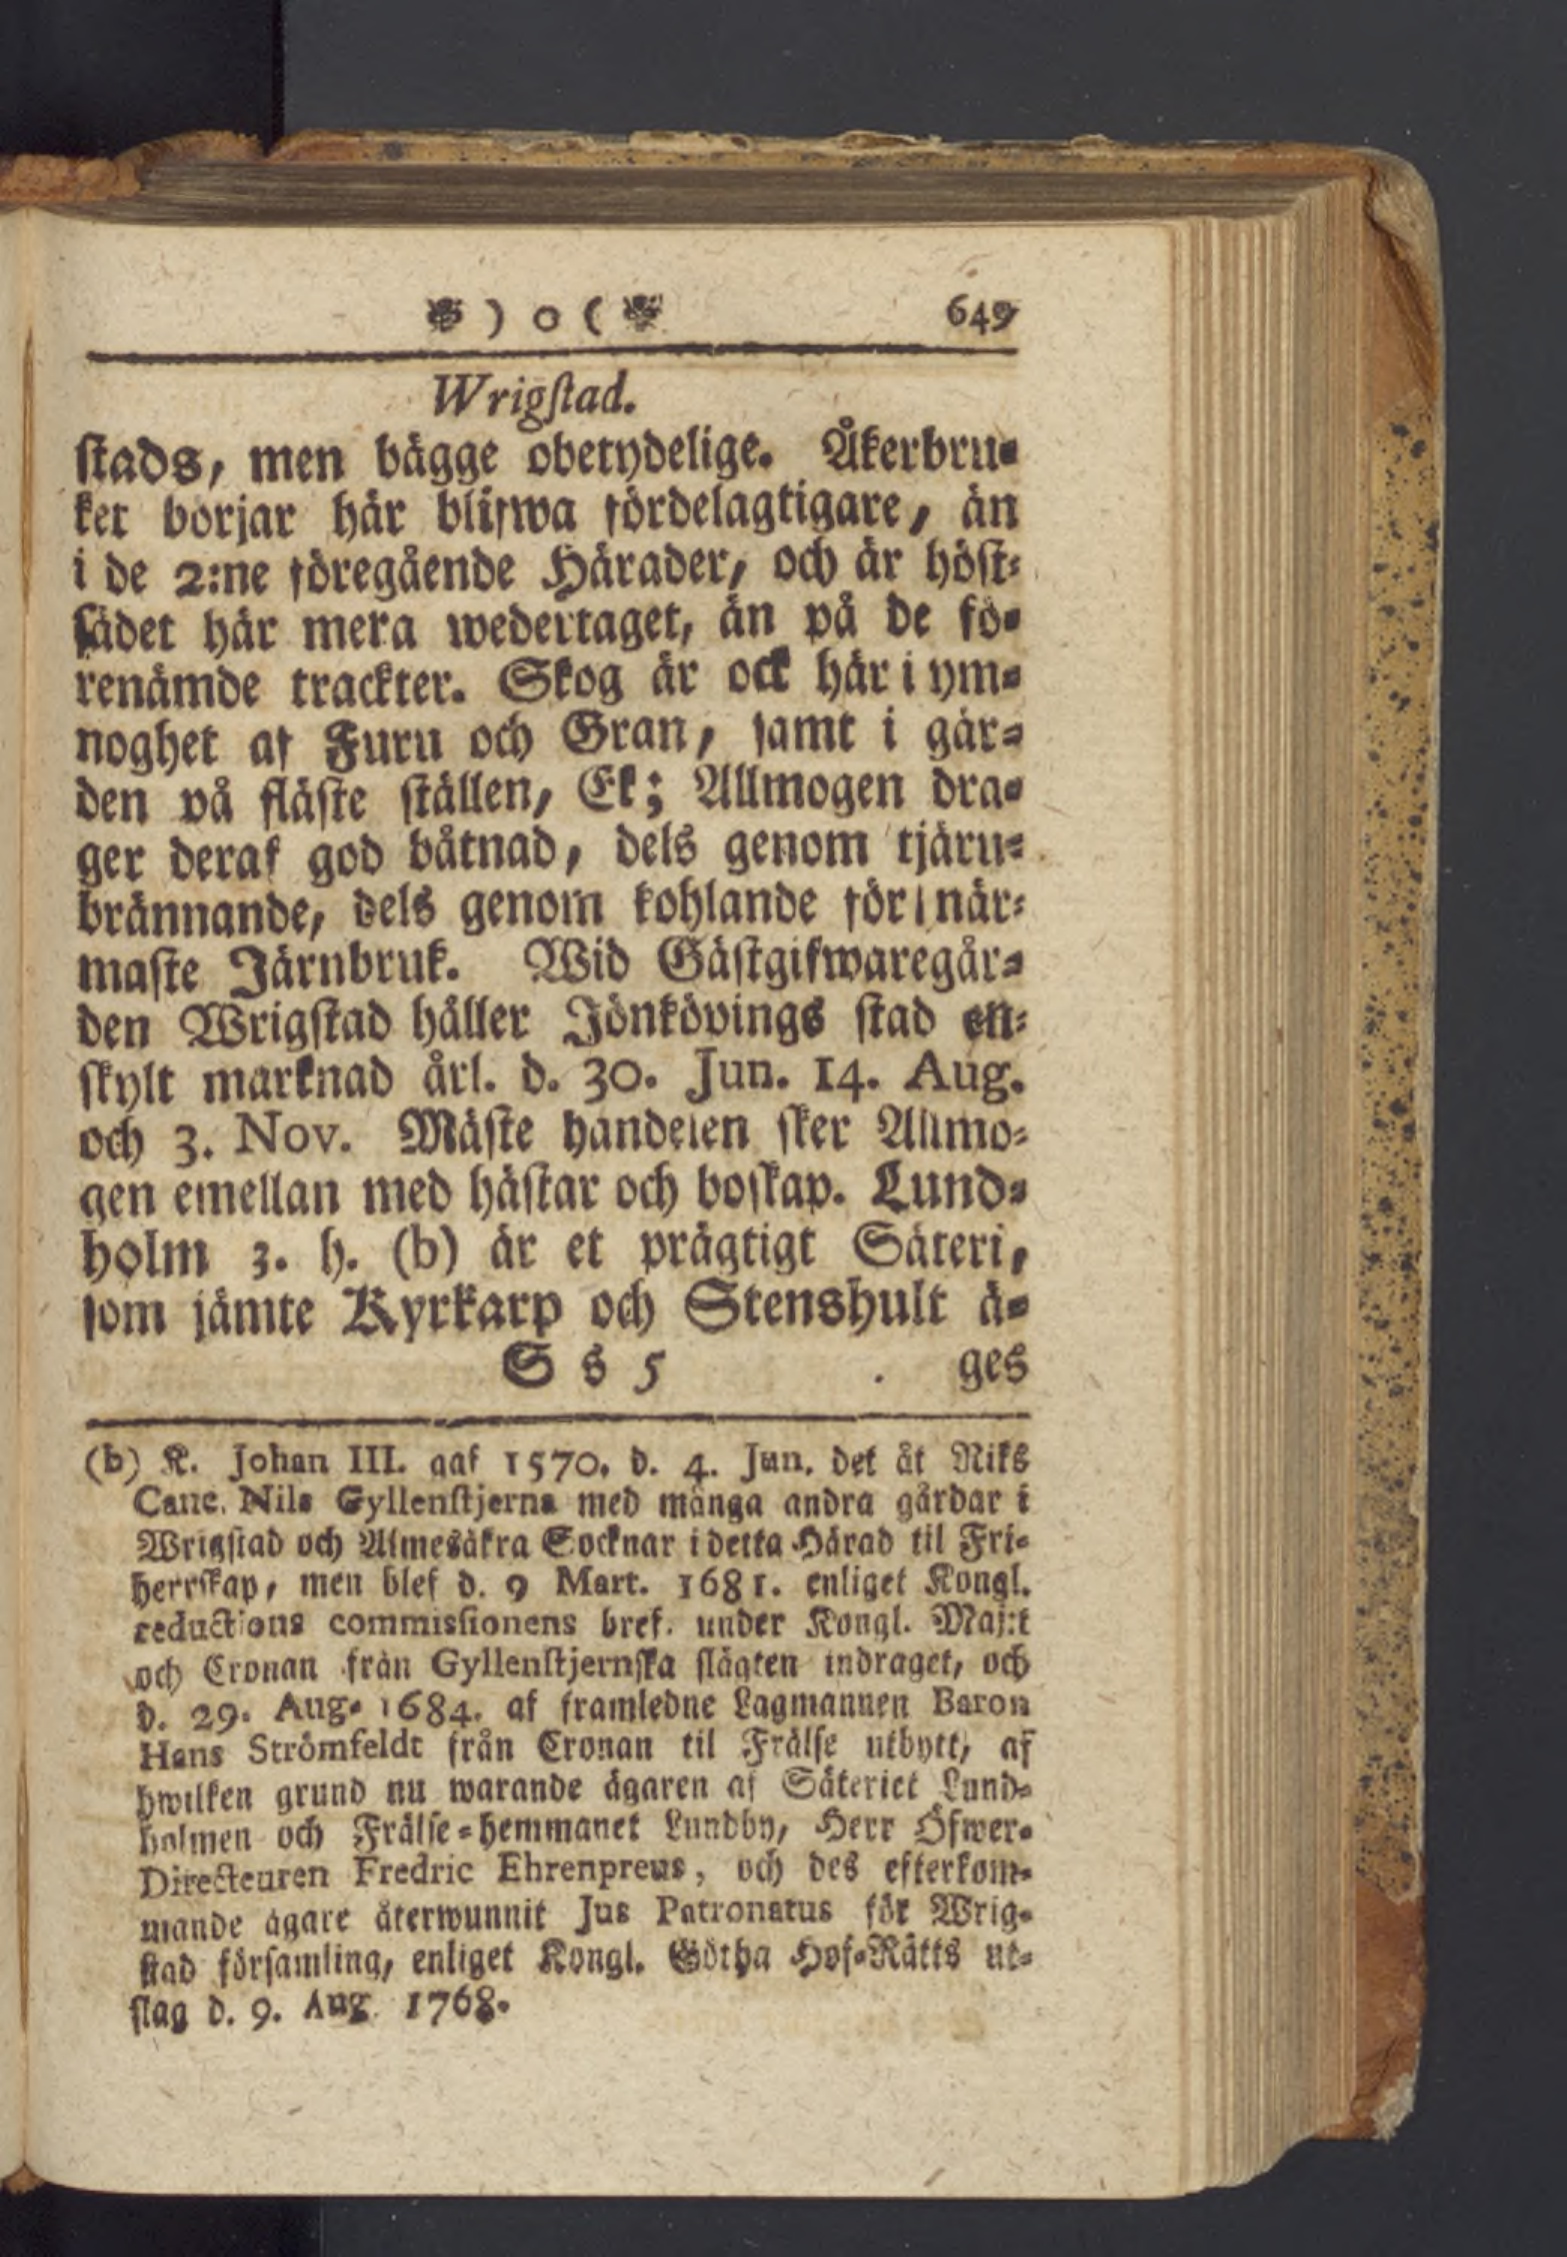 ) o ( 649
Wrigstad.
stads, men bägge obetydelige. Åkerbru-
ket börjar här blifwa fördelagtigare, än
i de 2:ne föregående Härader, och är höst-
sädet här mera wedertaget, än på de fö-
renämde trackter. Skog är ock här i ym-
noghet af Furu och Gran, samt i går-
den på fläste ställen, Ek; Allmogen dra-
ger deraf god båtnad, dels genom tjäru-
brännande, dels genom kohlande för när-
maste Järnbruk. Wid Gästgifwaregår-
den Wrigstad håller Jönköpings stad en-
skylt marknad årl. d. 30. Jun. 14. Aug.
och 3. Nov. Mäste handelen sker Allmo-
gen emellan med hästar och boskap. Lund-
holm 3. h. (b) är et prägtigt Säteri,
som jämte Kyrkarp och Stenshult ä-
S s 5 ges
(b) K. Johan III. gaf 1570. d. 4. Jun. det åt Riks
Canc. Nils Gyllenstjerna med många andra gårdar i
Wrigstad och Almesåkra Socknar i detta Härad til Fri-
herrskap, men blef d. 9 Mart. 1681. enliget Kongl.
reductions commissionens bref. under Kongl. Maj:t
och Cronan från Gyllenstjernska slägten indraget, och
d. 29. Aug. 1684. af framledne Lagmannen Baron
Hans Strömfeldt från Cronan til Frälse utbytt, af
hwilken grund nu warande ägaren af Säteriet Lund-
holmen och Frälse-hemmanet Lundby, Herr Öfwer-
Directeuren Fredric Ehrenpreus, och des efterkom-
mande ägare återwunnit Jus Patronatus för Wrig-
stad församling, enliget Kongl. Götha Hof-Rätts ut-
slag d. 9. Aug. 1768.